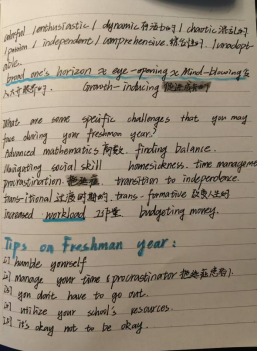 colorful / enthusiastic / dynamic 有活力的 / chaotic 混乱的
/ independent / comprehensive
broad one's horizon ≈ eye-opening ≈ Mind-blowing
Growth-inducing
What are some specific challenges that you may
face during your freshman year?
Advanced mathematics 高数. finding balance.
Navigating social skill homesickness. time manageme
procrastination. transition to independence.
trans-itional 过渡时期的. trans-formative 改变人生的
increased workload 工作量 budgeting money.
Tips on Freshman year:
humble yourself
manage your time & procrastinator
you don't have to go out.
utilize your school's resources.
it's okay not to be okay.